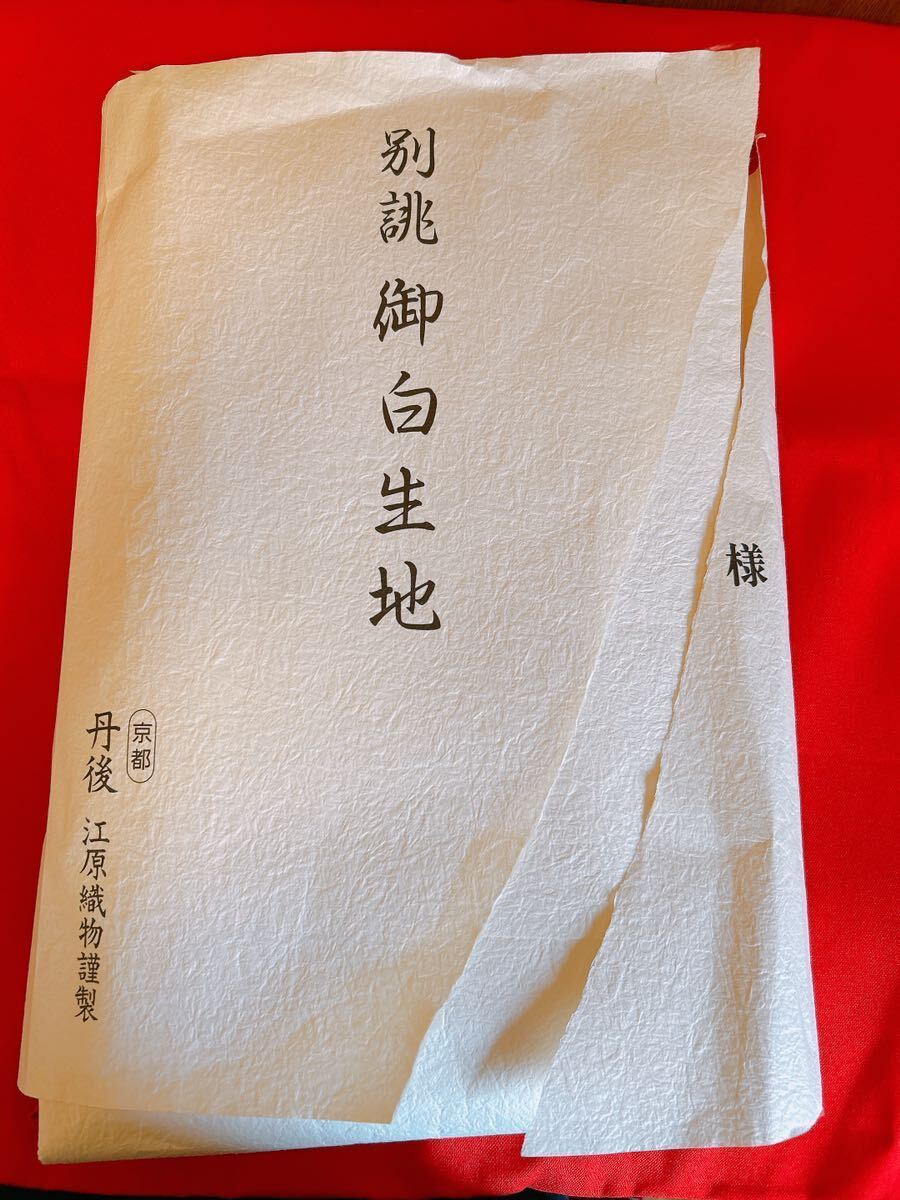 様
別誂 御白生地
京都
丹後 江原織物謹製